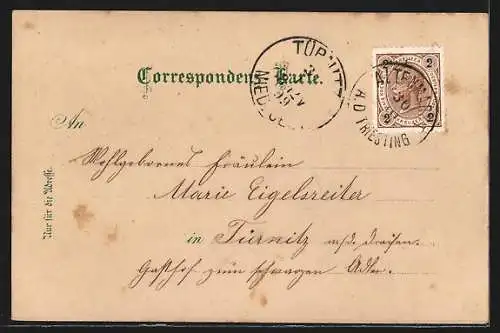 Correspondenz-Karte.
TÜRNITZ
2
2
2
2
A.D. TRIESTING
An
Wohlgebornes Fräulein
Marie Eigelsreiter
in Türnitz a/d.
Gasthof zum schwarzen Adler.
Nur für die Adresse.